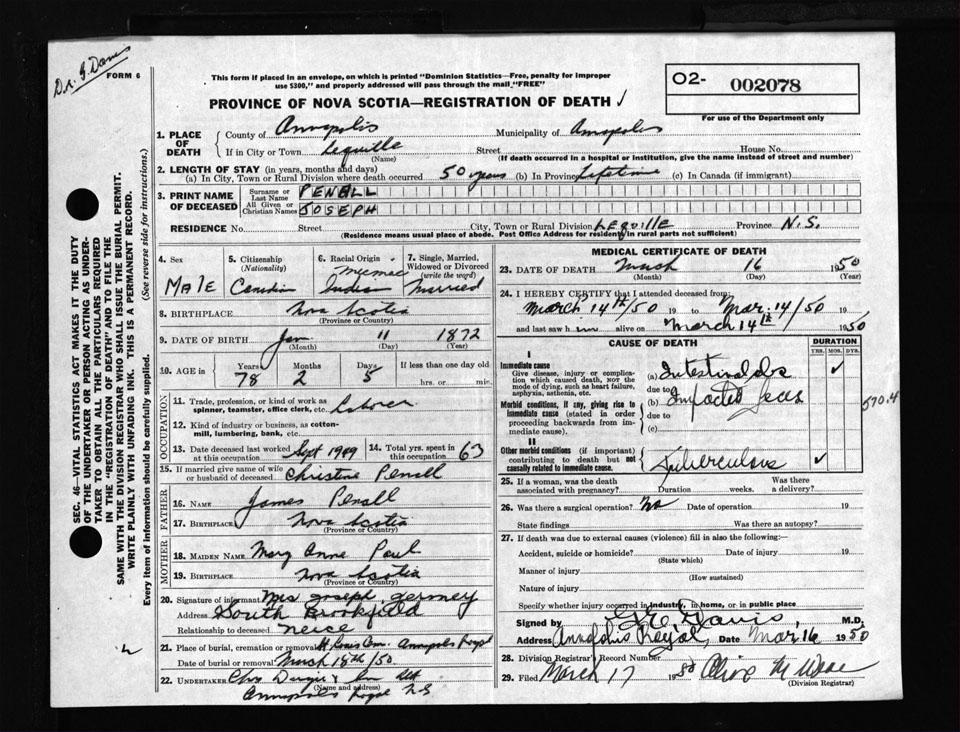 Dr. J. Davis
FORM 6
This form if placed in an envelope, on which is printed "Dominion Statistics—Free, penalty for improper
use $300," and properly addressed will pass through the mail "FREE"
PROVINCE OF NOVA SCOTIA—REGISTRATION OF DEATH
O2- 002078
For use of the Department only
1. PLACE OF DEATH
County of Annapolis Municipality of Annapolis
If in City or Town Lequille Street House No.
(Name) (If death occurred in a hospital or institution, give the name instead of street and number)
2. LENGTH OF STAY (in years, months and days)
(a) In City, Town or Rural Division where death occurred 50 years (b) In Province Lifetime (c) In Canada (if immigrant)
3. PRINT NAME OF DECEASED
Surname or Last Name PENALL
All Given or Christian Names JOSEPH
RESIDENCE No. Street City, Town or Rural Division LEQUILLE Province N.S.
(Residence means usual place of abode. Post Office Address for residents in rural parts not sufficient)
4. Sex
Male
5. Citizenship
(Nationality)
Canadian
6. Racial Origin
Micmac
Indian
7. Single, Married,
Widowed or Divorced
(write the word)
Married
8. BIRTHPLACE Nova Scotia
(Province or Country)
9. DATE OF BIRTH Jan 11 1872
(Month) (Day) (Year)
10. AGE in
Years Months Days If less than one day old
78 2 5 hrs. or min.
OCCUPATION
11. Trade, profession, or kind of work as
spinner, teamster, office clerk, etc. Laborer
12. Kind of industry or business, as cotton-
mill, lumbering, bank, etc.
13. Date deceased last worked
at this occupation Sept 1949
14. Total yrs. spent in
this occupation 63
15. If married give name of wife
or husband of deceased Christine Penall
FATHER
16. Name James Penall
17. Birthplace Nova Scotia
(Province or Country)
MOTHER
18. Maiden Name Mary Anne Paul
19. Birthplace Nova Scotia
(Province or Country)
20. Signature of informant Mrs Joseph
Address South Brookfield
Relationship to deceased neice
21. Place of burial, cremation or removal St Louis Cem. Annapolis Royal
Date of burial or removal March 18th/50
22. Undertaker
(Name and address)
Annapolis Royal N.S
MEDICAL CERTIFICATE OF DEATH
23. DATE OF DEATH March 16 1950
(Month) (Day) (Year)
24. I HEREBY CERTIFY that I attended deceased from
March 14th/50 19 to Mar. 14/50 19
and last saw him alive on March 14th 1950
CAUSE OF DEATH
DURATION
YRS. MOS. DYS.
I
Immediate cause
Give disease, injury or complica-
tion which caused death, NOT the
mode of dying, such as heart failure,
asphyxia, asthenia, etc.
(a) Intestinal obs
due to
Morbid conditions, if any, giving rise to
immediate cause (stated in order
proceeding backwards from im-
mediate cause).
(b) Impacted feces
due to
(c)
570.4
II
Other morbid conditions (if important)
contributing to death but not
causally related to immediate cause.
Tuberculous
25. If a woman, was the death
associated with pregnancy? Duration weeks. Was there
a delivery?
26. Was there a surgical operation? No Date of operation 19
State findings Was there an autopsy?
27. If death was due to external causes (violence) fill in also the following:
Accident, suicide or homicide? Date of injury 19
(State which)
Manner of injury
(How sustained)
Nature of injury
Specify whether injury occurred in industry, in home, or in public place
Signed by Davis, M.D.
Address Annapolis Royal, Date Mar 16 1950
28. Division Registrar's Record Number
29. Filed March 17 1950
(Division Registrar)
SEC. 46—VITAL STATISTICS ACT MAKES IT THE DUTY
OF THE UNDERTAKER OR PERSON ACTING AS UNDER-
TAKER TO OBTAIN ALL THE PARTICULARS REQUIRED
IN THE "REGISTRATION OF DEATH" AND TO FILE THE
SAME WITH THE DIVISION REGISTRAR WHO SHALL ISSUE THE BURIAL PERMIT.
WRITE PLAINLY WITH UNFADING INK. THIS IS A PERMANENT RECORD.
Every item of information should be carefully supplied. (See reverse side for instructions.)